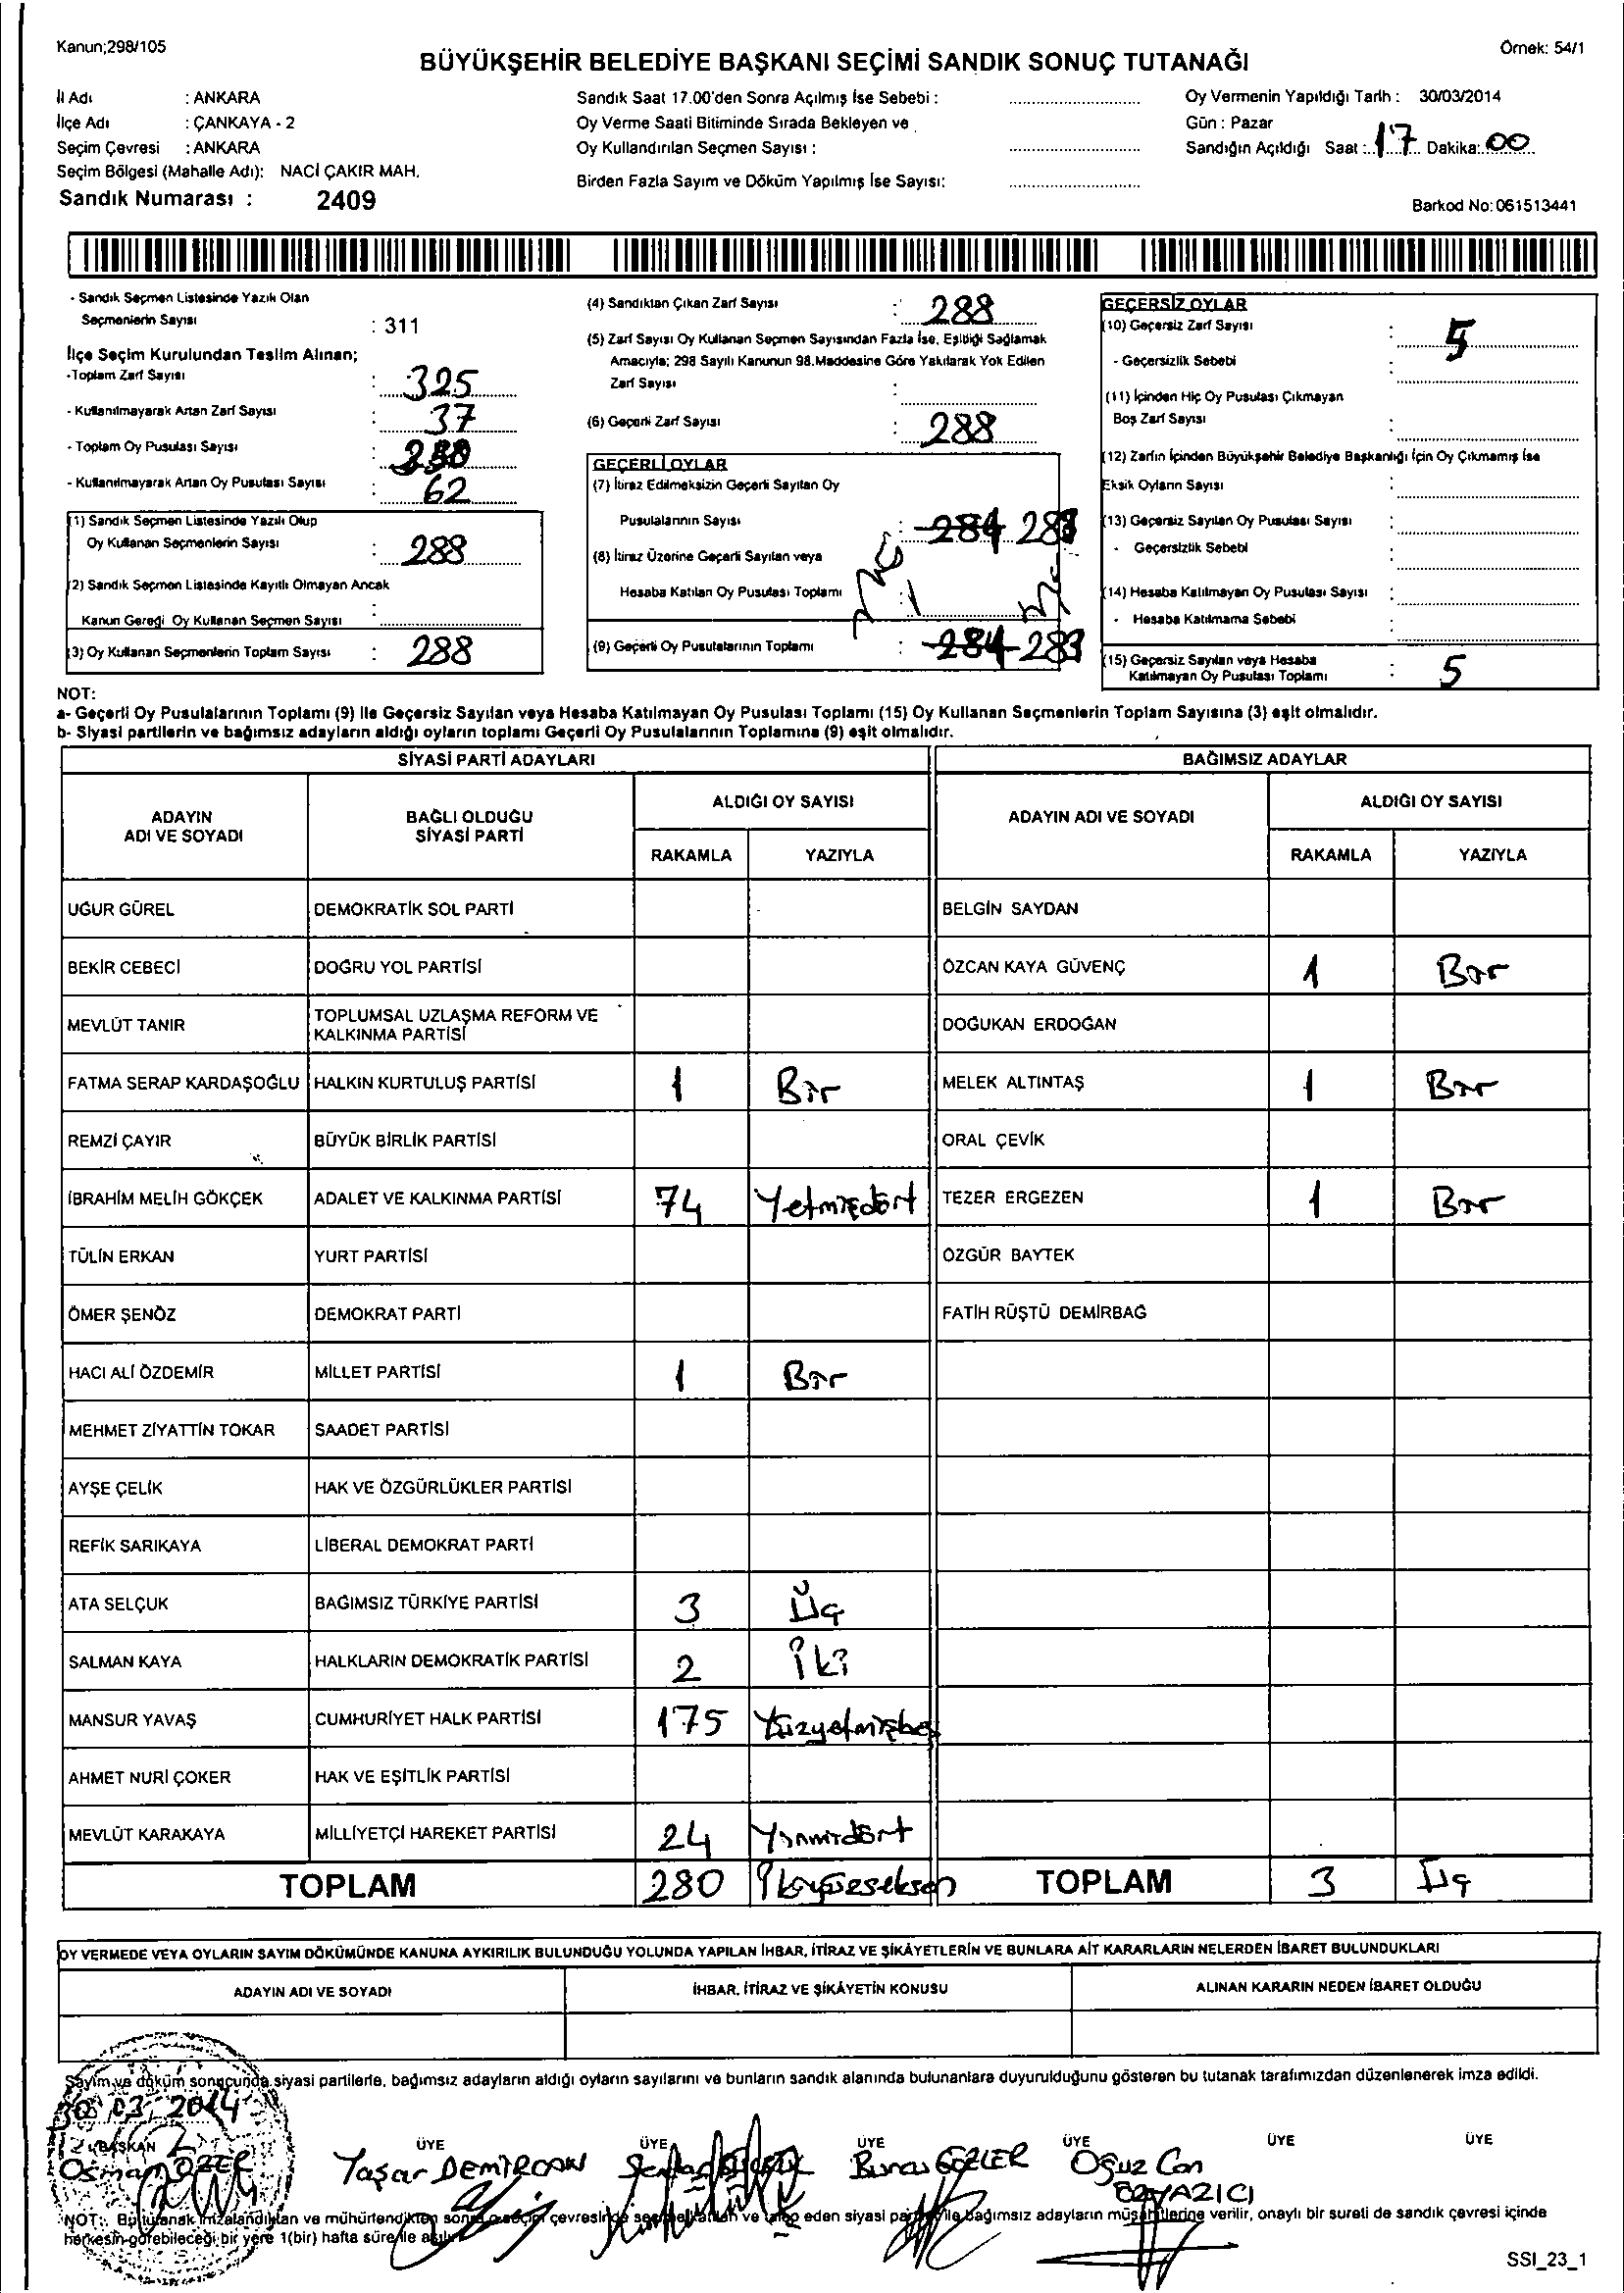 Kanun;298/105
Örnek: 54/1
BÜYÜKŞEHİR BELEDİYE BAŞKANI SEÇİMİ SANDIK SONUÇ TUTANAĞI
İl Adı : ANKARA
İlçe Adı : ÇANKAYA - 2
Seçim Çevresi : ANKARA
Seçim Bölgesi (Mahalle Adı): NACİ ÇAKIR MAH.
Sandık Numarası : 2409
Sandık Saat 17.00'den Sonra Açılmış İse Sebebi :
Oy Verme Saati Bitiminde Sırada Bekleyen ve
Oy Kullandırılan Seçmen Sayısı :
Birden Fazla Sayım ve Döküm Yapılmış İse Sayısı:
Oy Vermenin Yapıldığı Tarih : 30/03/2014
Gün : Pazar
Sandığın Açıldığı Saat : 17 Dakika: 00
Barkod No: 061513441
- Sandık Seçmen Listesinde Yazılı Olan
Seçmenlerin Sayısı : 311
İlçe Seçim Kurulundan Teslim Alınan;
-Toplam Zarf Sayısı : 325
- Kullanılmayarak Artan Zarf Sayısı : 37
- Toplam Oy Pusulası Sayısı :
- Kullanılmayarak Artan Oy Pusulası Sayısı : 62
(1) Sandık Seçmen Listesinde Yazılı Olup
Oy Kullanan Seçmenlerin Sayısı : 288
(2) Sandık Seçmen Listesinde Kayıtlı Olmayan Ancak
Kanun Gereği Oy Kullanan Seçmen Sayısı :
(3) Oy Kullanan Seçmenlerin Toplam Sayısı : 288
(4) Sandıktan Çıkan Zarf Sayısı : 288
(5) Zarf Sayısı Oy Kullanan Seçmen Sayısından Fazla İse, Eşitliği Sağlamak
Amacıyla; 298 Sayılı Kanunun 98.Maddesine Göre Yakılarak Yok Edilen
Zarf Sayısı :
(6) Geçerli Zarf Sayısı : 288
GEÇERLİ OYLAR
(7) İtiraz Edilmeksizin Geçerli Sayılan Oy
Pusulalarının Sayısı : 284 283
(8) İtiraz Üzerine Geçerli Sayılan veya
Hesaba Katılan Oy Pusulası Toplamı :
(9) Geçerli Oy Pusulalarının Toplamı : 284 283
GEÇERSİZ OYLAR
(10) Geçersiz Zarf Sayısı : 5
- Geçersizlik Sebebi :
(11) İçinden Hiç Oy Pusulası Çıkmayan
Boş Zarf Sayısı :
(12) Zarfın İçinden Büyükşehir Belediye Başkanlığı İçin Oy Çıkmamış İse
Eksik Oyların Sayısı :
(13) Geçersiz Sayılan Oy Pusulası Sayısı :
- Geçersizlik Sebebi :
(14) Hesaba Katılmayan Oy Pusulası Sayısı :
- Hesaba Katılmama Sebebi :
(15) Geçersiz Sayılan veya Hesaba
Katılmayan Oy Pusulası Toplamı : 5
NOT:
a- Geçerli Oy Pusulalarının Toplamı (9) ile Geçersiz Sayılan veya Hesaba Katılmayan Oy Pusulası Toplamı (15) Oy Kullanan Seçmenlerin Toplam Sayısına (3) eşit olmalıdır.
b- Siyasi partilerin ve bağımsız adayların aldığı oyların toplamı Geçerli Oy Pusulalarının Toplamına (9) eşit olmalıdır.
SİYASİ PARTİ ADAYLARI BAĞIMSIZ ADAYLAR
ADAYIN ADI VE SOYADI BAĞLI OLDUĞU SİYASİ PARTİ ALDIĞI OY SAYISI ADAYIN ADI VE SOYADI ALDIĞI OY SAYISI
RAKAMLA YAZIYLA RAKAMLA YAZIYLA
UĞUR GÜREL DEMOKRATİK SOL PARTİ BELGİN SAYDAN
BEKİR CEBECİ DOĞRU YOL PARTİSİ ÖZCAN KAYA GÜVENÇ 1 Bir
MEVLÜT TANIR TOPLUMSAL UZLAŞMA REFORM VE KALKINMA PARTİSİ DOĞUKAN ERDOĞAN
FATMA SERAP KARDAŞOĞLU HALKIN KURTULUŞ PARTİSİ 1 Bir MELEK ALTINTAŞ 1 Bir
REMZİ ÇAYIR BÜYÜK BİRLİK PARTİSİ ORAL ÇEVİK
İBRAHİM MELİH GÖKÇEK ADALET VE KALKINMA PARTİSİ 74 Yetmişdört TEZER ERGEZEN 1 Bir
TÜLİN ERKAN YURT PARTİSİ ÖZGÜR BAYTEK
ÖMER ŞENÖZ DEMOKRAT PARTİ FATİH RÜŞTÜ DEMİRBAĞ
HACI ALİ ÖZDEMİR MİLLET PARTİSİ 1 Bir
MEHMET ZİYATTİN TOKAR SAADET PARTİSİ
AYŞE ÇELİK HAK VE ÖZGÜRLÜKLER PARTİSİ
REFİK SARIKAYA LİBERAL DEMOKRAT PARTİ
ATA SELÇUK BAĞIMSIZ TÜRKİYE PARTİSİ 3 Üç
SALMAN KAYA HALKLARIN DEMOKRATİK PARTİSİ 2 İki
MANSUR YAVAŞ CUMHURİYET HALK PARTİSİ 175 Yüzyetmişbeş
AHMET NURİ ÇOKER HAK VE EŞİTLİK PARTİSİ
MEVLÜT KARAKAYA MİLLİYETÇİ HAREKET PARTİSİ 24 Yirmidört
TOPLAM 280 İkiyüzseksen TOPLAM 3 Üç
OY VERMEDE VEYA OYLARIN SAYIM DÖKÜMÜNDE KANUNA AYKIRILIK BULUNDUĞU YOLUNDA YAPILAN İHBAR, İTİRAZ VE ŞİKÂYETLERİN VE BUNLARA AİT KARARLARIN NELERDEN İBARET BULUNDUKLARI
ADAYIN ADI VE SOYADI İHBAR, İTİRAZ VE ŞİKÂYETİN KONUSU ALINAN KARARIN NEDEN İBARET OLDUĞU
Sayım ve döküm sonucunda siyasi partilerle, bağımsız adayların aldığı oyların sayılarını ve bunların sandık alanında bulunanlara duyurulduğunu gösteren bu tutanak tarafımızdan düzenlenerek imza edildi.
30 03 2014
BAŞKAN ÜYE ÜYE ÜYE ÜYE ÜYE ÜYE
Osman ÖZER Yaşar DEMİRCAN Burcu GÖZLER Oğuz Can ÖZYAZICI
NOT: Bu tutanak imzalandıktan ve mühürlendikten sonra o seçim çevresinde seçime katılan ve talep eden siyasi parti ile bağımsız adayların müşahitlerine verilir, onaylı bir sureti de sandık çevresi içinde
herkesin görebileceği bir yere 1(bir) hafta süre ile asılır.
SSI_23_1